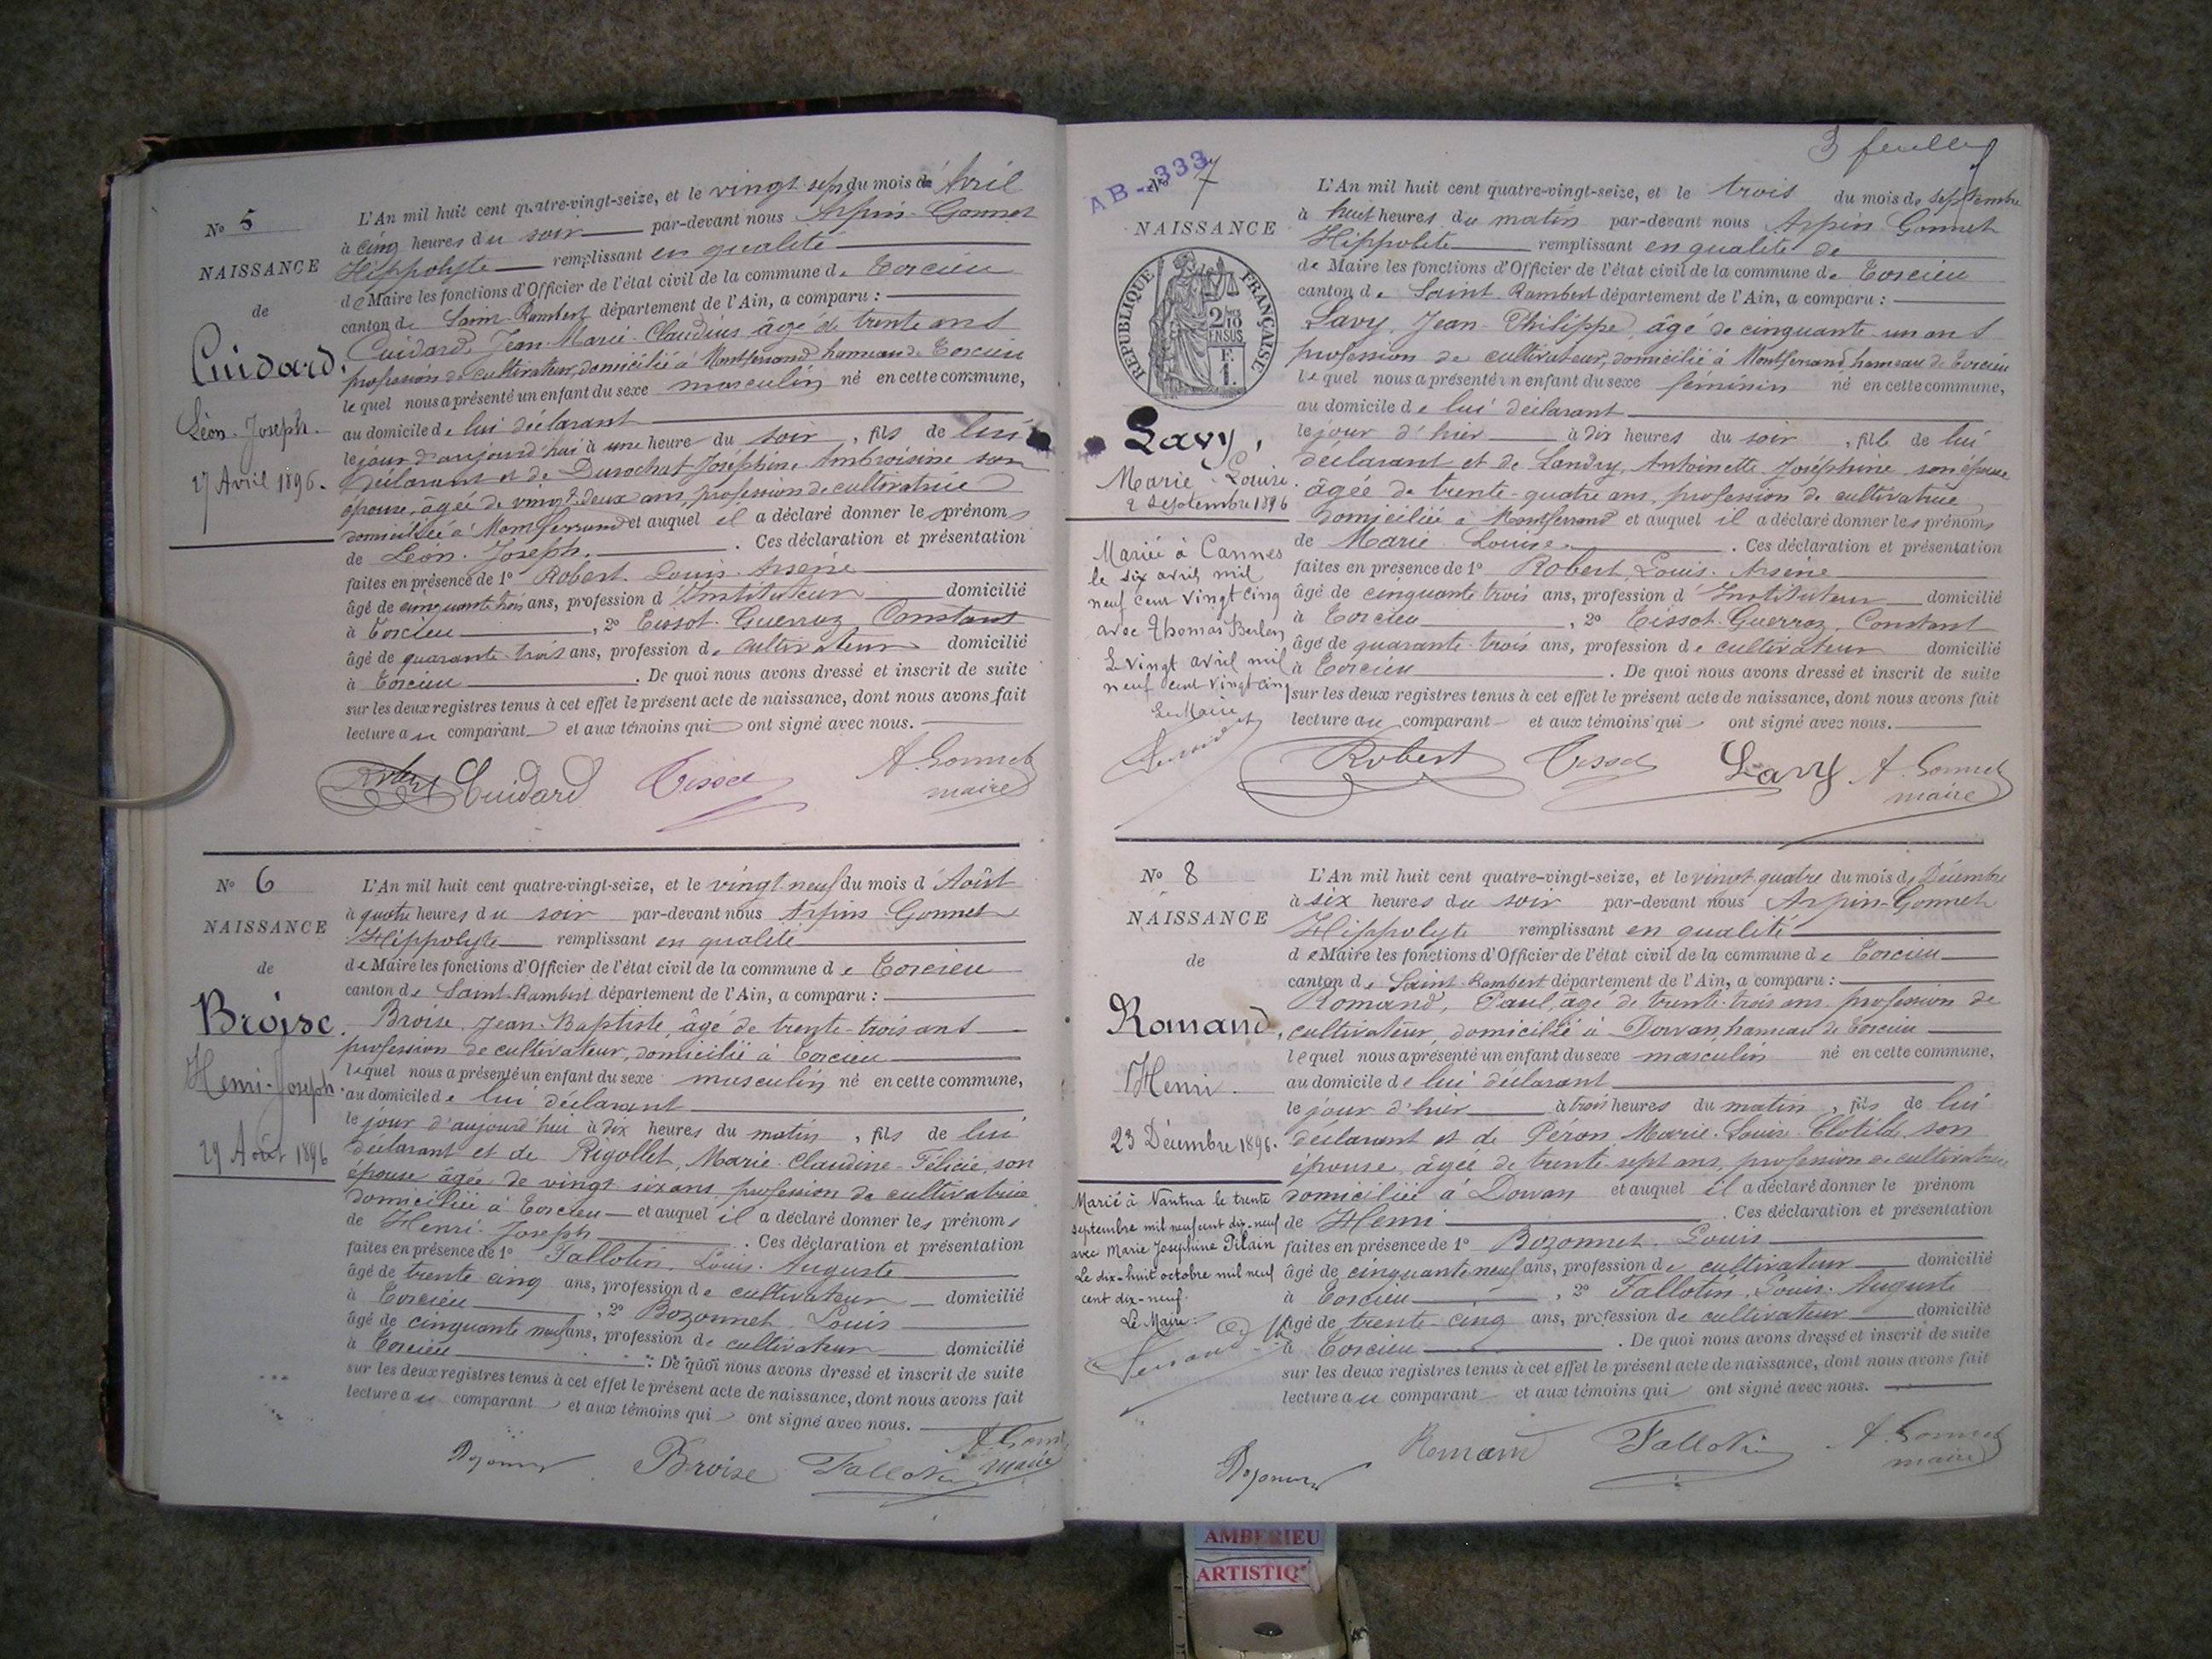 No 5
NAISSANCE
de
Cuidard,
Léon-Joseph.
27 Avril 1896.
L'An mil huit cent quatre-vingt-seize, et le vingt sept du mois de Avril
à cinq heures du soir par-devant nous Arpin-Gonnet
Hippolyte remplissant en qualité
de Maire les fonctions d'Officier de l'état civil de la commune de Torcieu
canton de Saint-Rambert département de l'Ain, a comparu :
Cuidard, Jean-Marie-Claudius, âgé de trente ans
profession de cultivateur, domicilié à Montferrand hameau de Torcieu
lequel nous a présenté un enfant du sexe masculin né en cette commune,
au domicile de lui déclarant
le jour d'aujourd'hui à une heure du soir, fils de lui
déclarant et de Durochat Joséphine Ambroisine son
épouse, âgée de vingt-deux ans, profession de cultivatrice
domiciliée à Montferrand et auquel il a déclaré donner les prénoms
de Léon-Joseph. Ces déclaration et présentation
faites en présence de 1o Robert Louis-Arsène
âgé de cinquante trois ans, profession d'Instituteur domicilié
à Torcieu, 2o Tissot-Guerraz, Constant
âgé de quarante-trois ans, profession de cultivateur domicilié
à Torcieu. De quoi nous avons dressé et inscrit de suite
sur les deux registres tenus à cet effet le présent acte de naissance, dont nous avons fait
lecture au comparant et aux témoins qui ont signé avec nous.
Robert Cuidard Tissot A. Gonnet
maire
No 6
NAISSANCE
de
Broise.
Henri-Joseph.
29 Août 1896
L'An mil huit cent quatre-vingt-seize, et le vingt-neuf du mois d'Août
à quatre heures du soir par-devant nous Arpin-Gonnet
Hippolyte remplissant en qualité
de Maire les fonctions d'Officier de l'état civil de la commune de Torcieu
canton de Saint-Rambert département de l'Ain, a comparu :
Broise, Jean-Baptiste âgé de trente-trois ans
profession de cultivateur, domicilié à Torcieu
lequel nous a présenté un enfant du sexe masculin né en cette commune,
au domicile de lui déclarant
le jour d'aujourd'hui à dix heures du matin, fils de lui
déclarant et de Rigollet, Marie-Claudine-Félicie, son
épouse âgée de vingt six ans, profession de cultivatrice
domiciliée à Torcieu et auquel il a déclaré donner les prénoms
de Henri-Joseph. Ces déclaration et présentation
faites en présence de 1o Tallotin, Louis-Auguste
âgé de trente cinq ans, profession de cultivateur domicilié
à Torcieu, 2o Bozonnet, Louis
âgé de cinquante neuf ans, profession de cultivateur domicilié
à Torcieu. De quoi nous avons dressé et inscrit de suite
sur les deux registres tenus à cet effet le présent acte de naissance, dont nous avons fait
lecture au comparant et aux témoins qui ont signé avec nous.
Bozonnet Broise Tallotin A. Gonnet
maire
3 feuille
AB-333
No 7
NAISSANCE
RÉPUBLIQUE FRANÇAISE
2/10
EN SUS
F.
1.
Lavy,
Marie-Louise.
2 Septembre 1896
Mariée à Cannes
le six avril mil
neuf cent vingt cinq
avec Thomas
Le vingt avril mil
neuf cent vingt cinq
Le Maire
L'An mil huit cent quatre-vingt-seize, et le trois du mois de Septembre
à huit heures du matin par-devant nous Arpin-Gonnet
Hippolite remplissant en qualité de
de Maire les fonctions d'Officier de l'état civil de la commune de Torcieu
canton de Saint-Rambert département de l'Ain, a comparu :
Lavy, Jean-Philippe, âgé de cinquante-un ans
profession de cultivateur, domicilié à Montferrand, hameau de Torcieu
lequel nous a présenté un enfant du sexe féminin né en cette commune,
au domicile de lui déclarant
le jour d'hier à dix heures du soir, fille de lui
déclarant et de Landry, Antoinette Joséphine son épouse
âgée de trente-quatre ans, profession de cultivatrice
domiciliée à Montferrand et auquel il a déclaré donner les prénoms
de Marie-Louise. Ces déclaration et présentation
faites en présence de 1o Robert, Louis-Arsène
âgé de cinquante trois ans, profession d'Instituteur domicilié
à Torcieu, 2o Tissot-Guerraz, Constant
âgé de quarante-trois ans, profession de cultivateur domicilié
à Torcieu. De quoi nous avons dressé et inscrit de suite
sur les deux registres tenus à cet effet le présent acte de naissance, dont nous avons fait
lecture au comparant et aux témoins qui ont signé avec nous.
Robert Tissot Lavy A. Gonnet
maire
No 8
NAISSANCE
de
Romand,
Henri.
23 Décembre 1896.
Marié à Nantua le trente
septembre mil neuf cent dix-neuf
avec Marie Joséphine Pilain
Le dix-huit octobre mil neuf
cent dix-neuf.
Le Maire.
L'An mil huit cent quatre-vingt-seize, et le vingt-quatre du mois de Décembre
à six heures du soir par-devant nous Arpin-Gonnet
Hippolyte remplissant en qualité
de Maire les fonctions d'Officier de l'état civil de la commune de Torcieu
canton de Saint-Rambert département de l'Ain, a comparu :
Romand, Paul, âgé de trente-trois ans profession de
cultivateur, domicilié à Dorvan, hameau de Torcieu
lequel nous a présenté un enfant du sexe masculin né en cette commune,
au domicile de lui déclarant
le jour d'hier à trois heures du matin, fils de lui
déclarant et de Péron Marie-Louise Clotilde son
épouse, âgée de trente-sept ans, profession de cultivatrice,
domiciliée à Dorvan et auquel il a déclaré donner le prénom
de Henri. Ces déclaration et présentation
faites en présence de 1o Bozonnet Louis
âgé de cinquante neuf ans, profession de cultivateur domicilié
à Torcieu, 2o Tallotin, Louis-Auguste
âgé de trente-cinq ans, profession de cultivateur domicilié
à Torcieu. De quoi nous avons dressé et inscrit de suite
sur les deux registres tenus à cet effet le présent acte de naissance, dont nous avons fait
lecture au comparant et aux témoins qui ont signé avec nous.
Bozonnet Romand Tallotin A. Gonnet
maire
AMBERIEU
ARTISTIQ